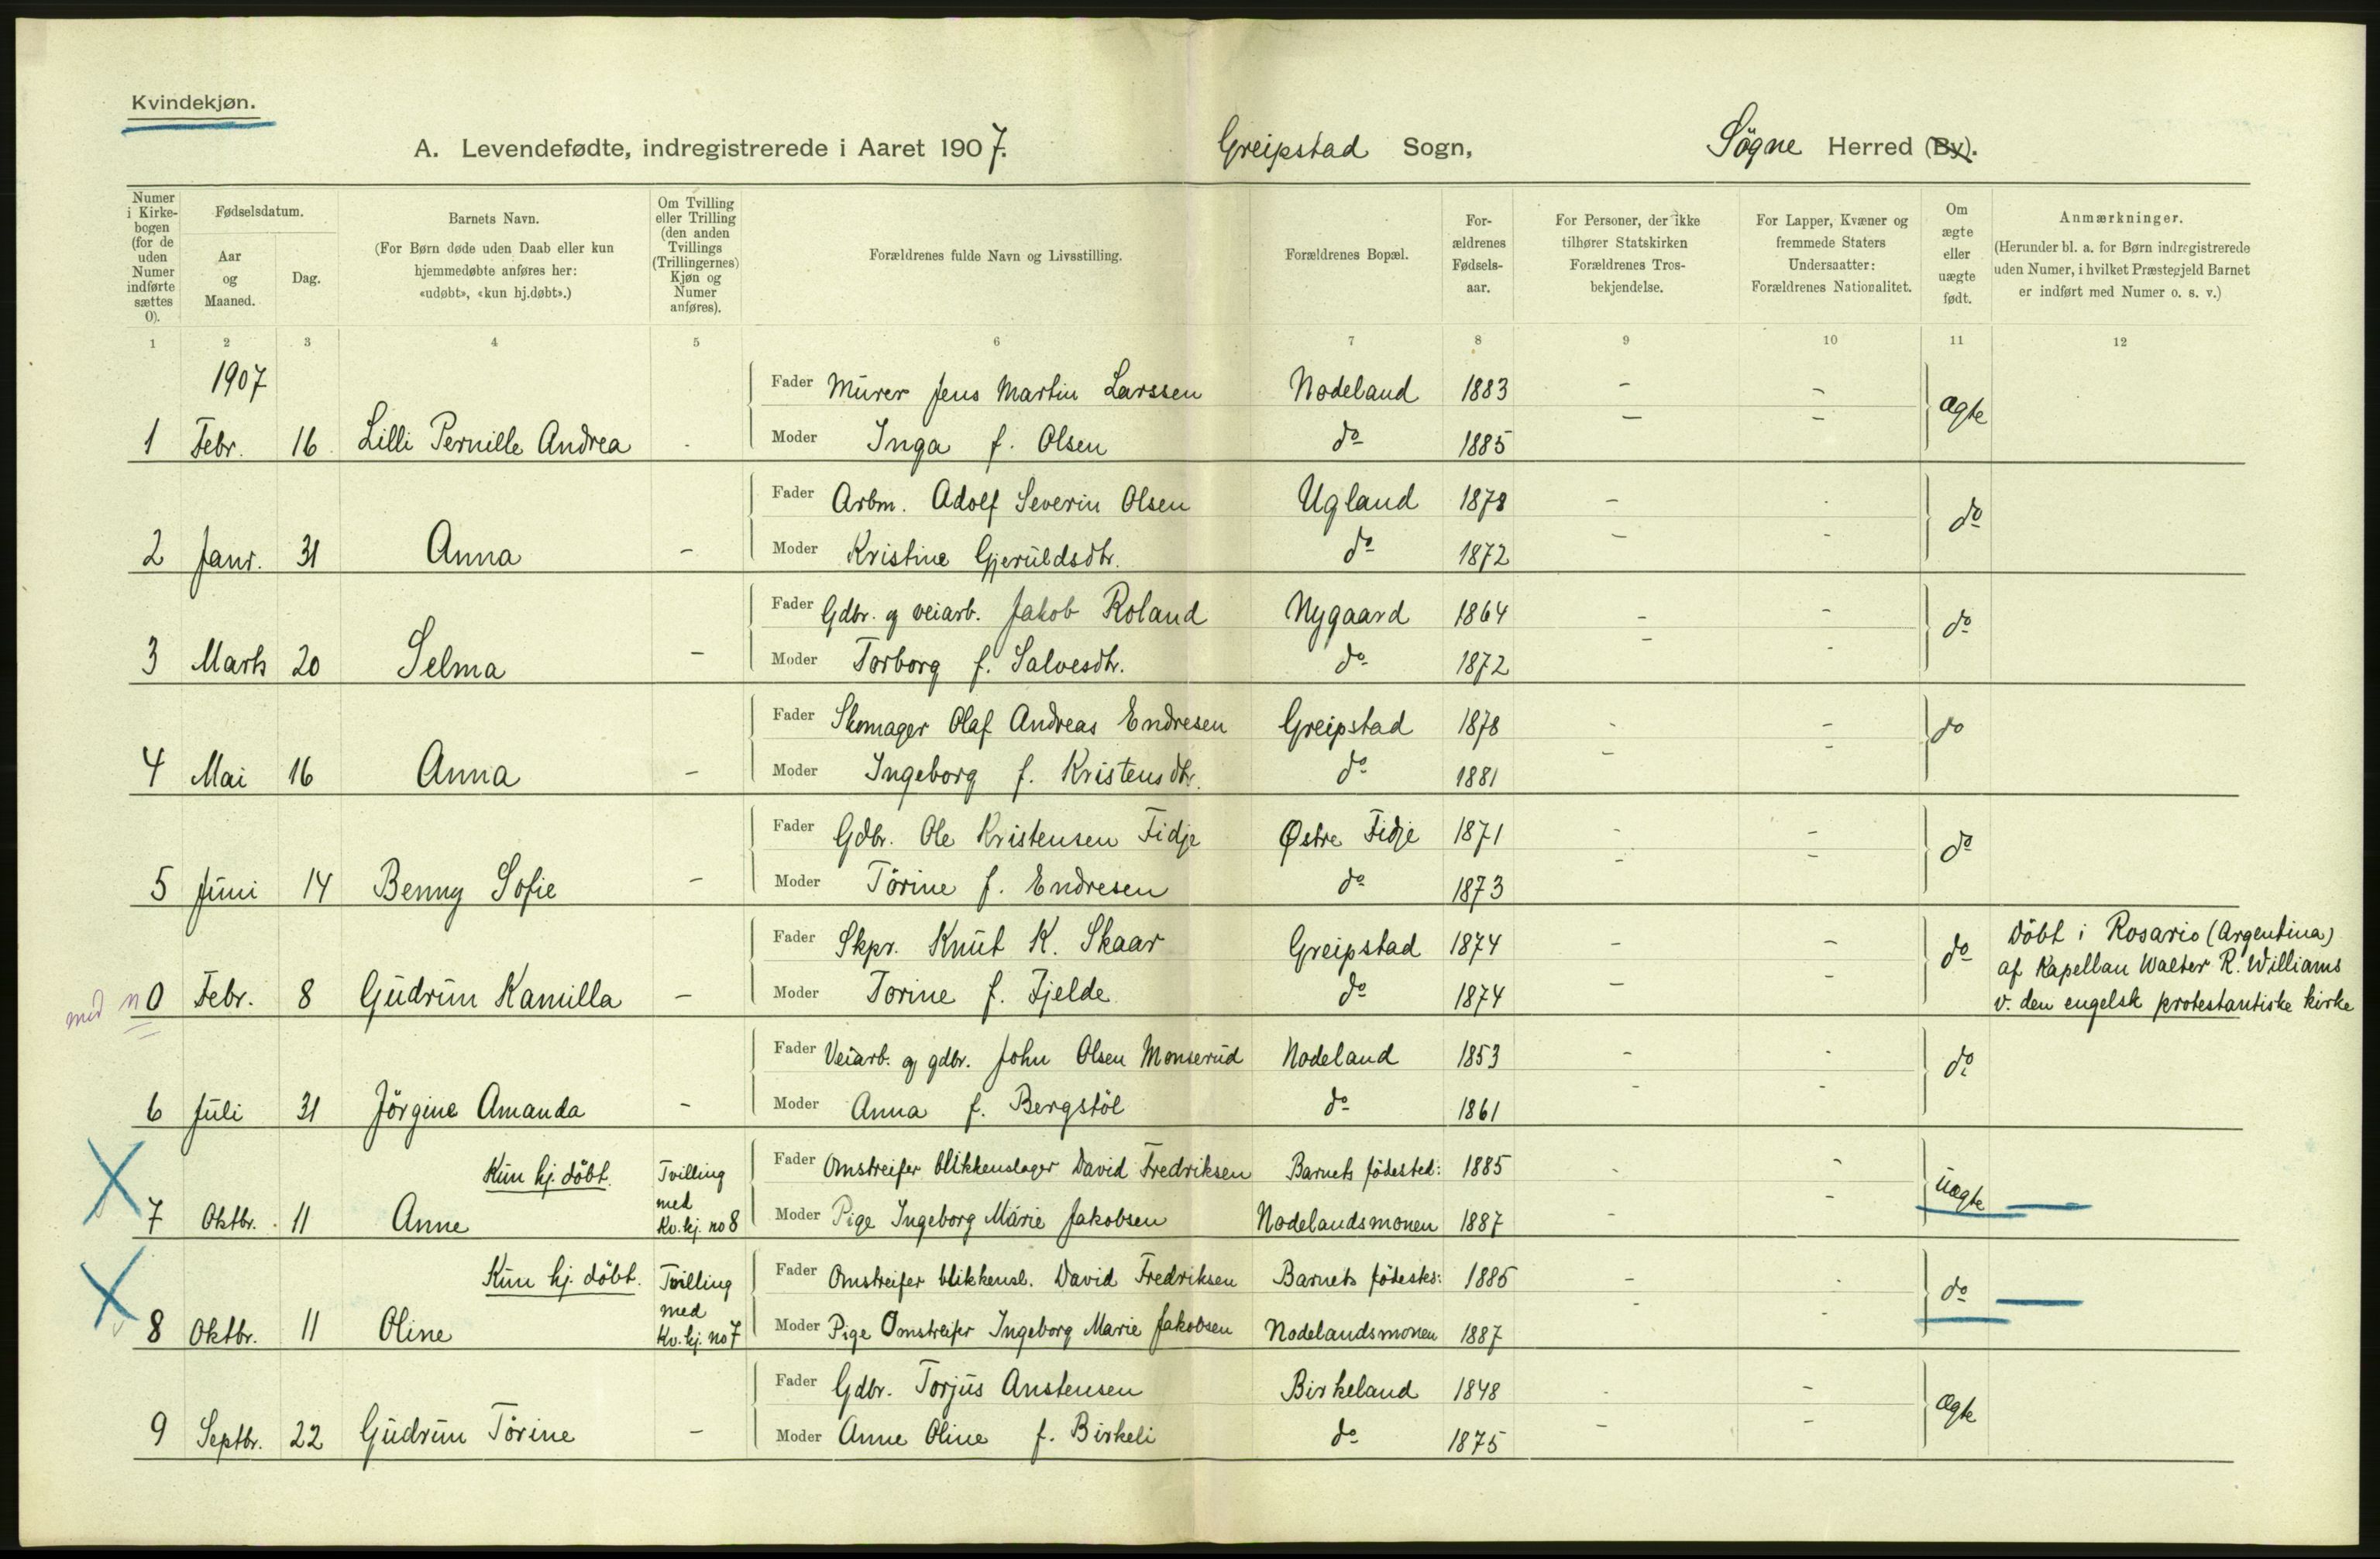 Kvindekjøn.
A. Levendefødte, indregistrerede i Aaret 1907. Greipstad Sogn, Søgne Herred (By).
Numer i Kirkebogen (for de uden Numer indførte sættes 0).
Fødselsdatum.
Aar og Maaned.
Dag.
Barnets Navn.
(For Børn døde uden Daab eller kun hjemmedøbte anføres her: «udøbt», «kun hj.døbt».)
Om Tvilling eller Trilling (den anden Tvillings (Trillingernes) Kjøn og Numer anføres).
Forældrenes fulde Navn og Livsstilling.
Forældrenes Bopæl.
Forældrenes Fødselsaar.
For Personer, der ikke tilhører Statskirken Forældrenes Trosbekjendelse.
For Lapper, Kvæner og fremmede Staters Undersaatter: Forældrenes Nationalitet.
Om ægte eller uægte født.
Anmærkninger.
(Herunder bl. a. for Børn indregistrerede uden Numer, i hvilket Præstegjeld Barnet er indført med Numer o. s. v.)
1 2 3 4 5 6 7 8 9 10 11 12
1907
Fader Murer Jens Martin Larssen Nodeland 1883 - - ægte
1 Febr. 16 Lilli Pernille Andrea - Moder Inga f. Olsen do 1885 - -
Fader Arbm. Adolf Severin Olsen Ugland 1878 - - do
2 Janr. 31 Anna - Moder Kristine Gjeruldsdtr. do 1872 - -
Fader Gdbr. og veiarb. Jakob Roland Nygaard 1864 - - do
3 Marts 20 Selma - Moder Torborg f. Salvesdtr. do 1872 - -
Fader Skomager Olaf Andreas Endresen Greipstad 1878 - - do
4 Mai 16 Anna - Moder Ingeborg f. Kristensdtr. do 1881 - -
Fader Gdbr. Ole Kristensen Fidje Østre Fidje 1871 - - do
5 Juni 14 Benny Sofie - Moder Törine f. Endresen do 1873 - -
Fader Skpr. Knut K. Skaar Greipstad 1874 - - do Döbt i Rosario (Argentina)
af Kapellan Walter R. Williams
med n 0 Febr. 8 Gudrun Kamilla - Moder Torine f. Fjelde do 1874 - - v. den engelsk protestantiske kirke
Fader Veiarb. og gdbr. John Olsen Monserud Nodeland 1853 - - do
6 Juli 31 Jörgine Amanda - Moder Anna f. Bergstöl do 1861 - -
Kun hj. döbt. Tvilling Fader Omstreifer blikkenslager David Fredriksen Barnets födested: 1885 - - uægte
7 Oktbr. 11 Anne med Kv.kj. no 8 Moder Pige Ingeborg Marie Jakobsen Nodelandsmonen 1887 - -
Kun hj. döbt. Tvilling Fader Omstreifer blikkensl. David Fredriksen Barnets födests: 1885 - - do
8 Oktbr. 11 Oline med Kv.kj. no 7 Moder Pige Omstreifer Ingeborg Marie Jakobsen Nodelandsmonen 1887 - -
Fader Gdbr. Torjus Anstensen Birkeland 1848 - - ægte
9 Septbr. 22 Gudrun Törine - Moder Anne Oline f. Birkeli do 1875 - -